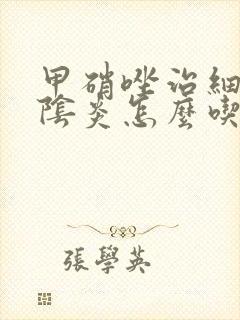 甲硝唑治細
陰炎怎麼喫
張學英